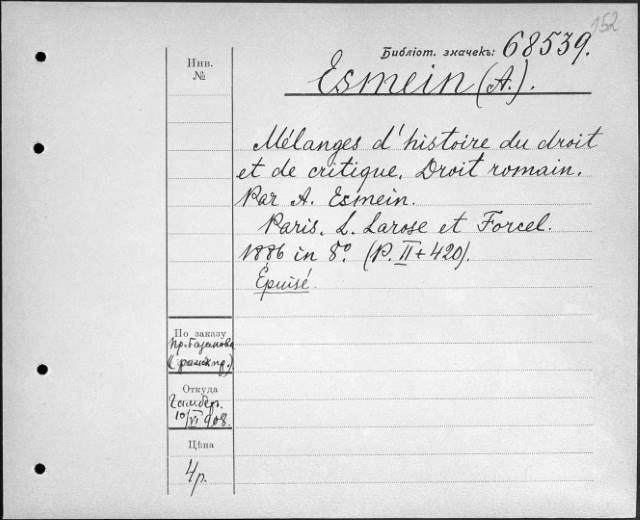 152
Библіот. значекъ: 68539.
Инв.
№
Esmein (A.).
Mélanges d'histoire du droit
et de critique. Droit romain.
Par A. Esmein.
Paris. L. Larose et Forcel.
1886 in 8°. (P. II + 420).
Épuisé.
По заказу
Пр. Базанова
Откуда
10/VI 908.
Цѣна
4 р.